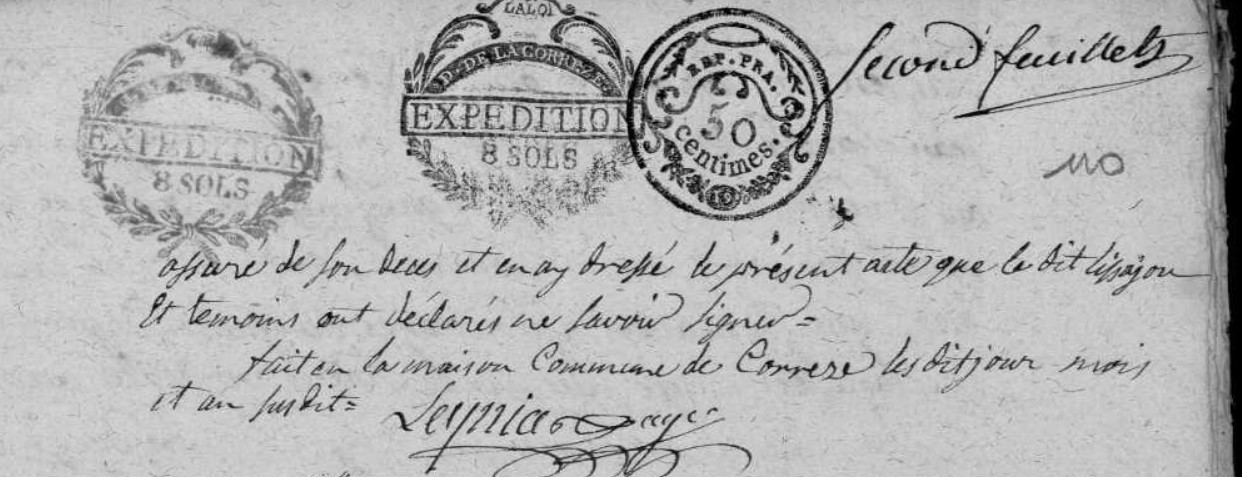 LA LOI
D. DE LA CORREZE
EXPEDITION
8 SOLS
EXPEDITION
8 SOLS
REP. FRA.
50
centimes.
second feuillets
110
assuré de son deces et en ay dressé le présent acte que le dit
Et temoins ont déclarés ne savoir signer =
fait en la maison Commune de Correze les dit jour mois
et an susdit =